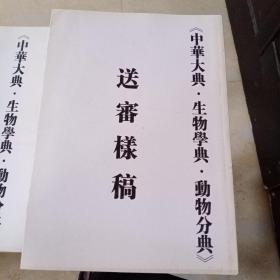 《中華大典·生物學典·動物分典》
送審樣稿
《中華大典·生物學典·動物分